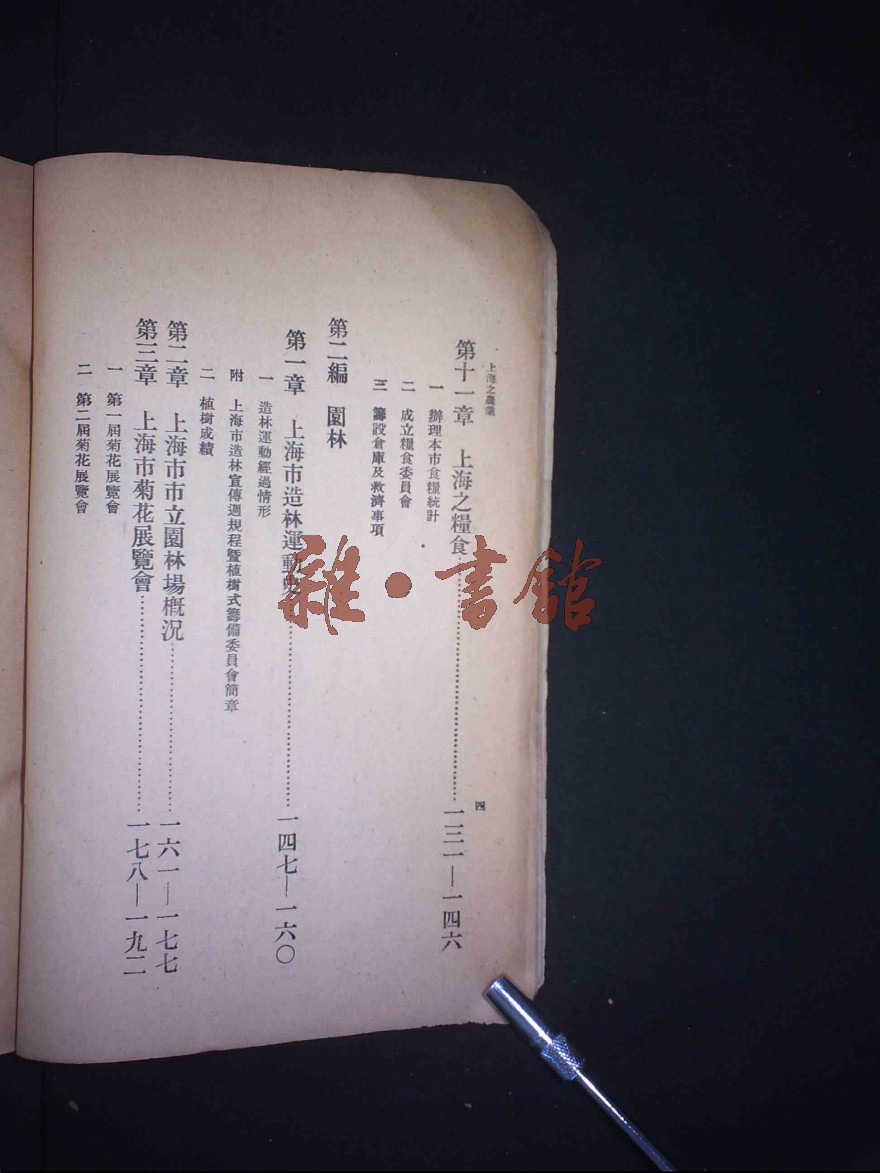 上海之農業
四
第十一章　上海之糧食……一三一—一四六
一　辦理本市食糧統計
二　成立糧食委員會
三　籌設倉庫及救濟事項
第二編　園林
第一章　上海市造林運動……一四七—一六〇
一　造林運動經過情形
附　上海市造林宣傳週規程暨植樹式籌備委員會簡章
二　植樹成績
第二章　上海市市立園林場概況……一六一—一七七
第三章　上海市菊花展覽會……一七八—一九二
一　第一屆菊花展覽會
二　第二屆菊花展覽會
雜·書館